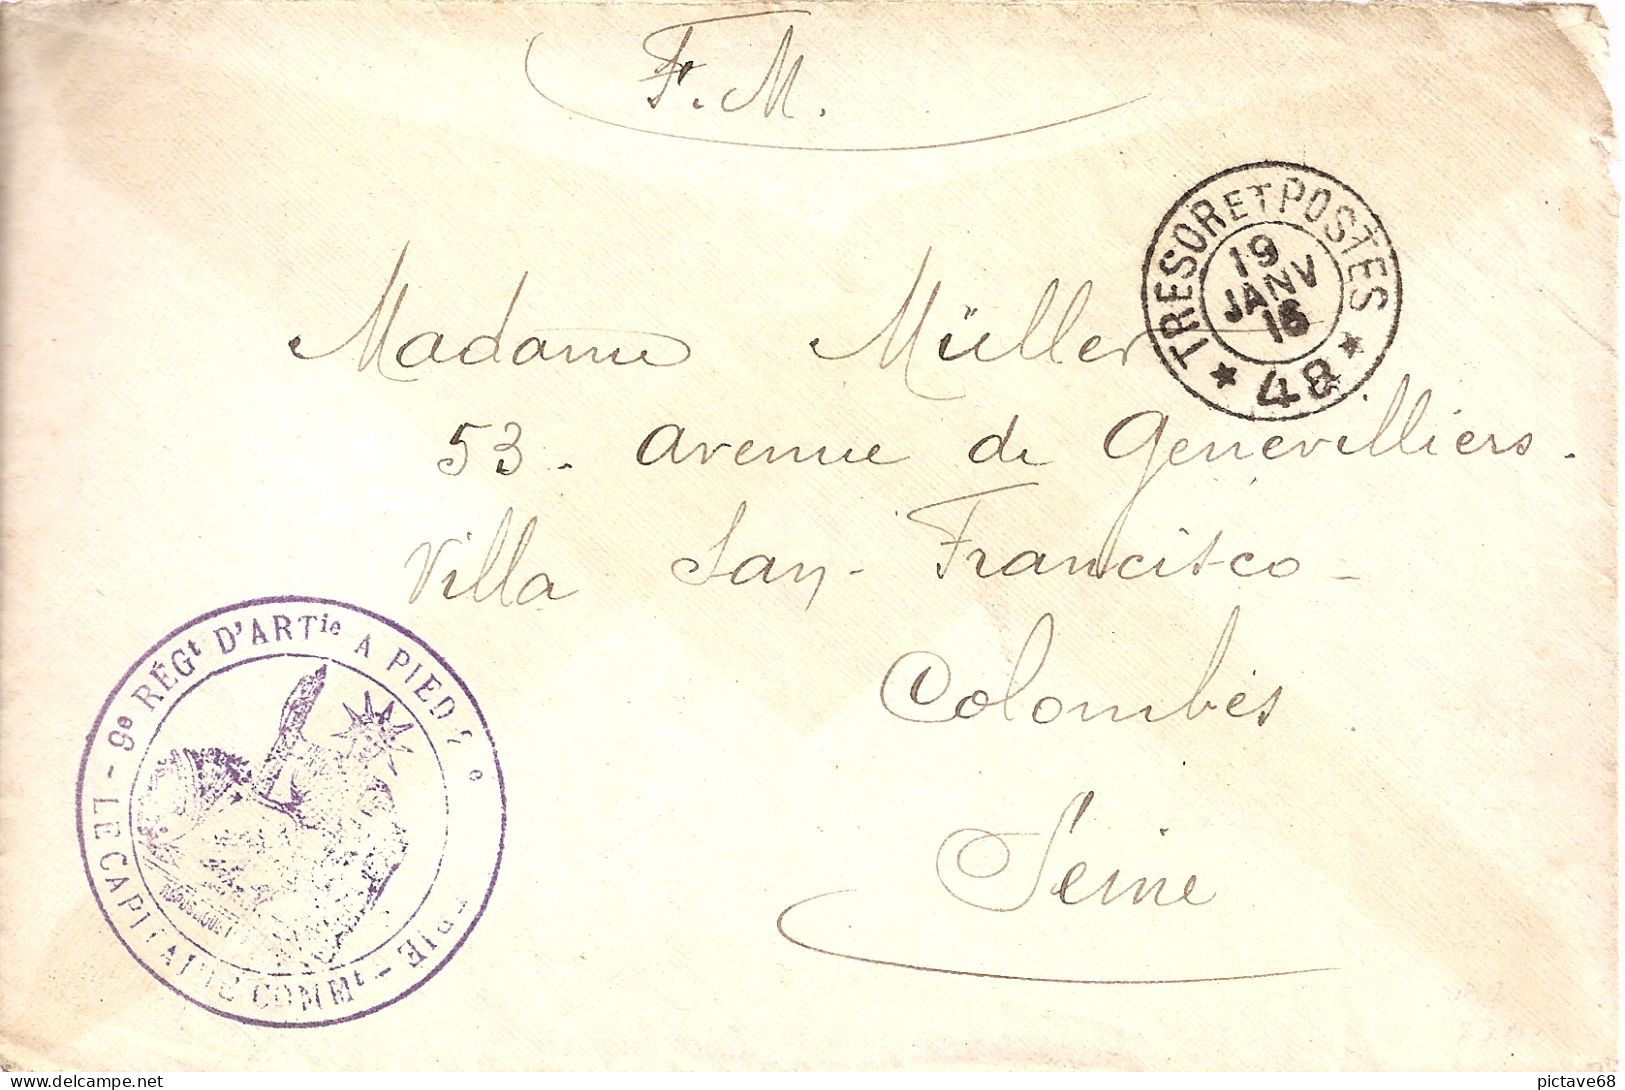 F. M.
TRESOR ET POSTES
19
JANV
* 48 *
Madame Müller
53. avenue de Genevilliers.
Villa San-Francisco-
Colombes
Seine
9e RÉGt D'ARTie A PIED
LE CAPITAINE COMMt
delcampe.net
pictave68